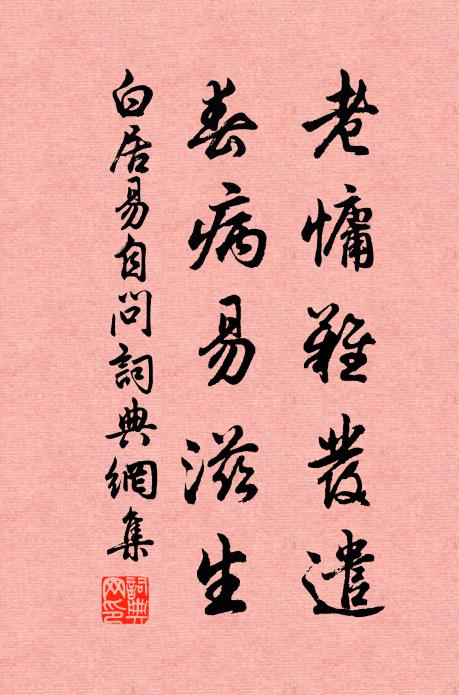 老慵難發遣
春病易滋生
白居易自問詞典網集
詞典网印